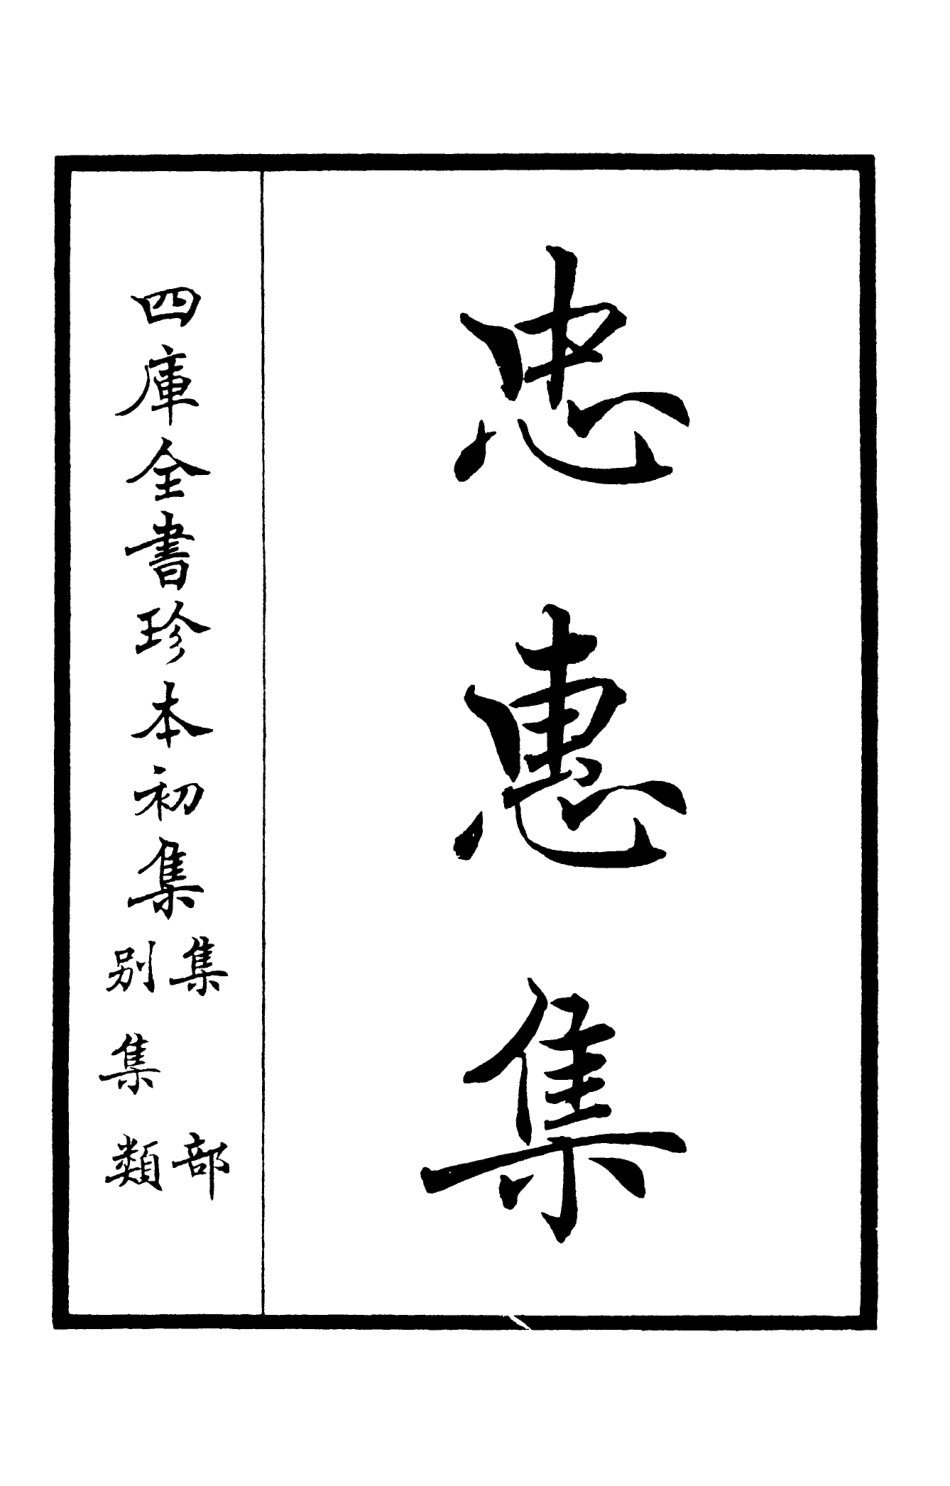 忠惠集
四庫全書珍本初集
集部
別集類